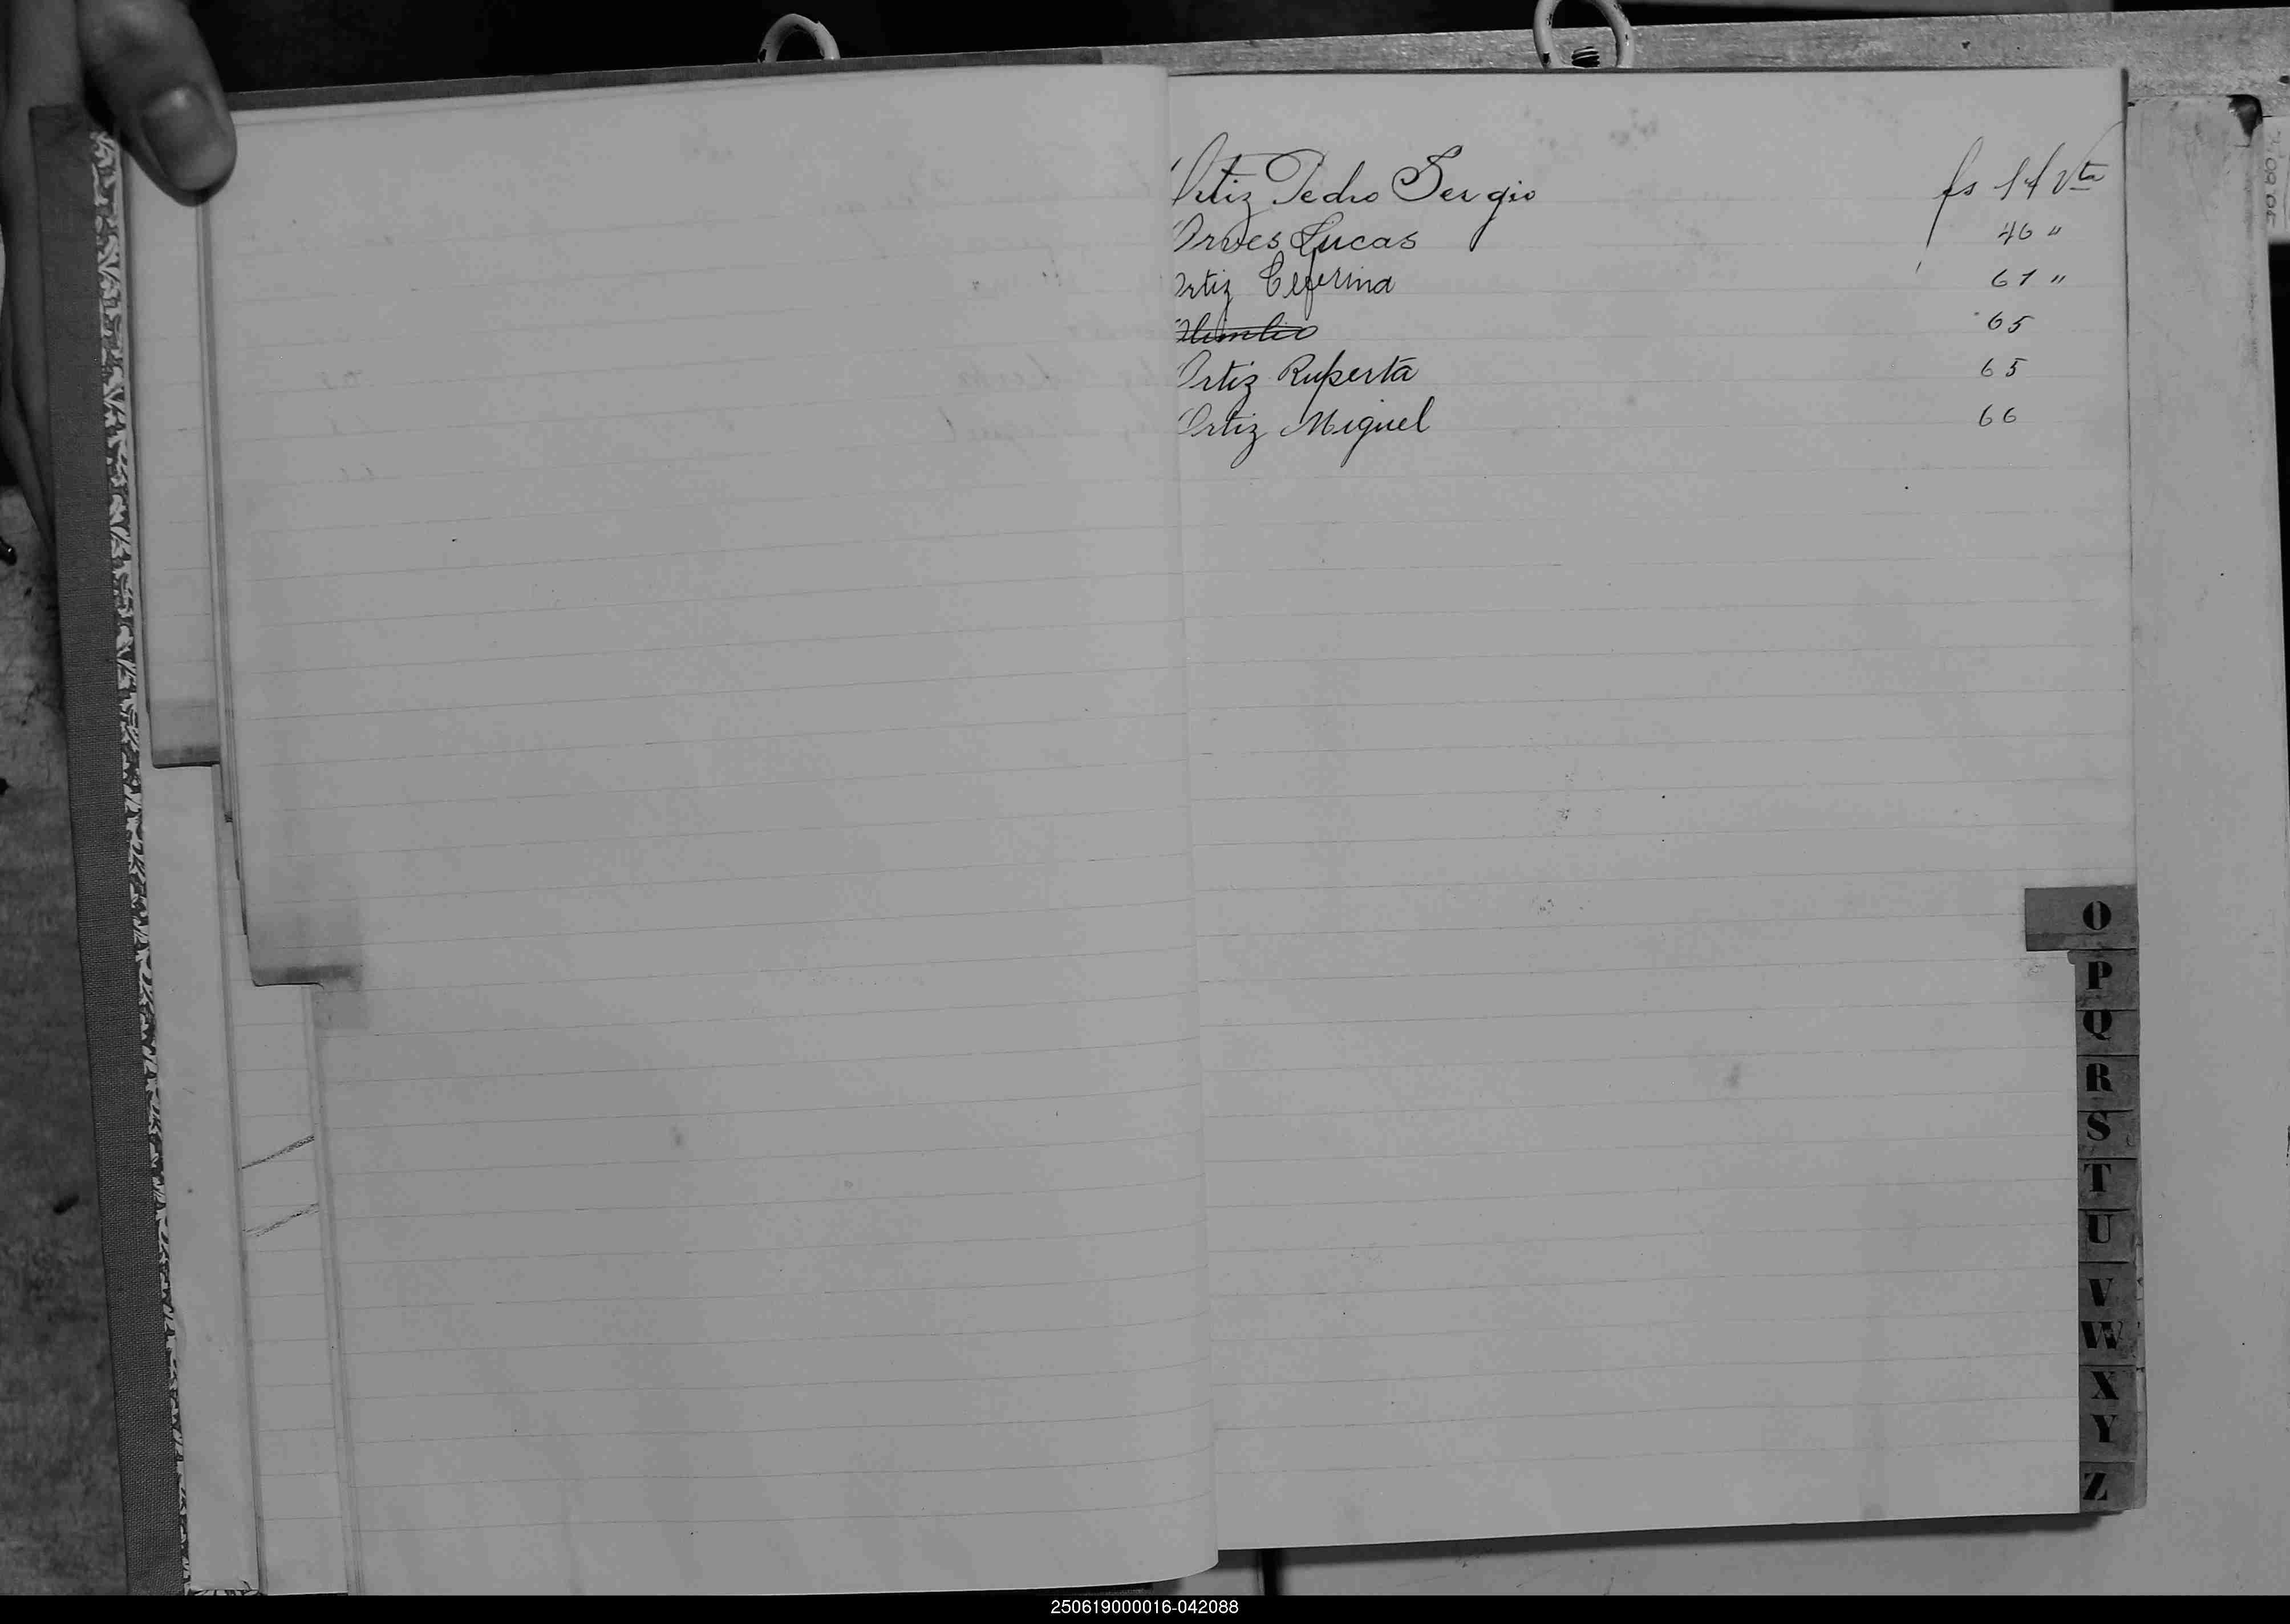 Ortiz Pedro Sergio fs 14 Vta
Orves Lucas 46 "
Ortiz Ceferina 61 "
65
Ortiz Ruperta 65
Ortiz Miguel 66
O
P
Q
R
S
T
U
V
W
X
Y
Z
250619000016-042088